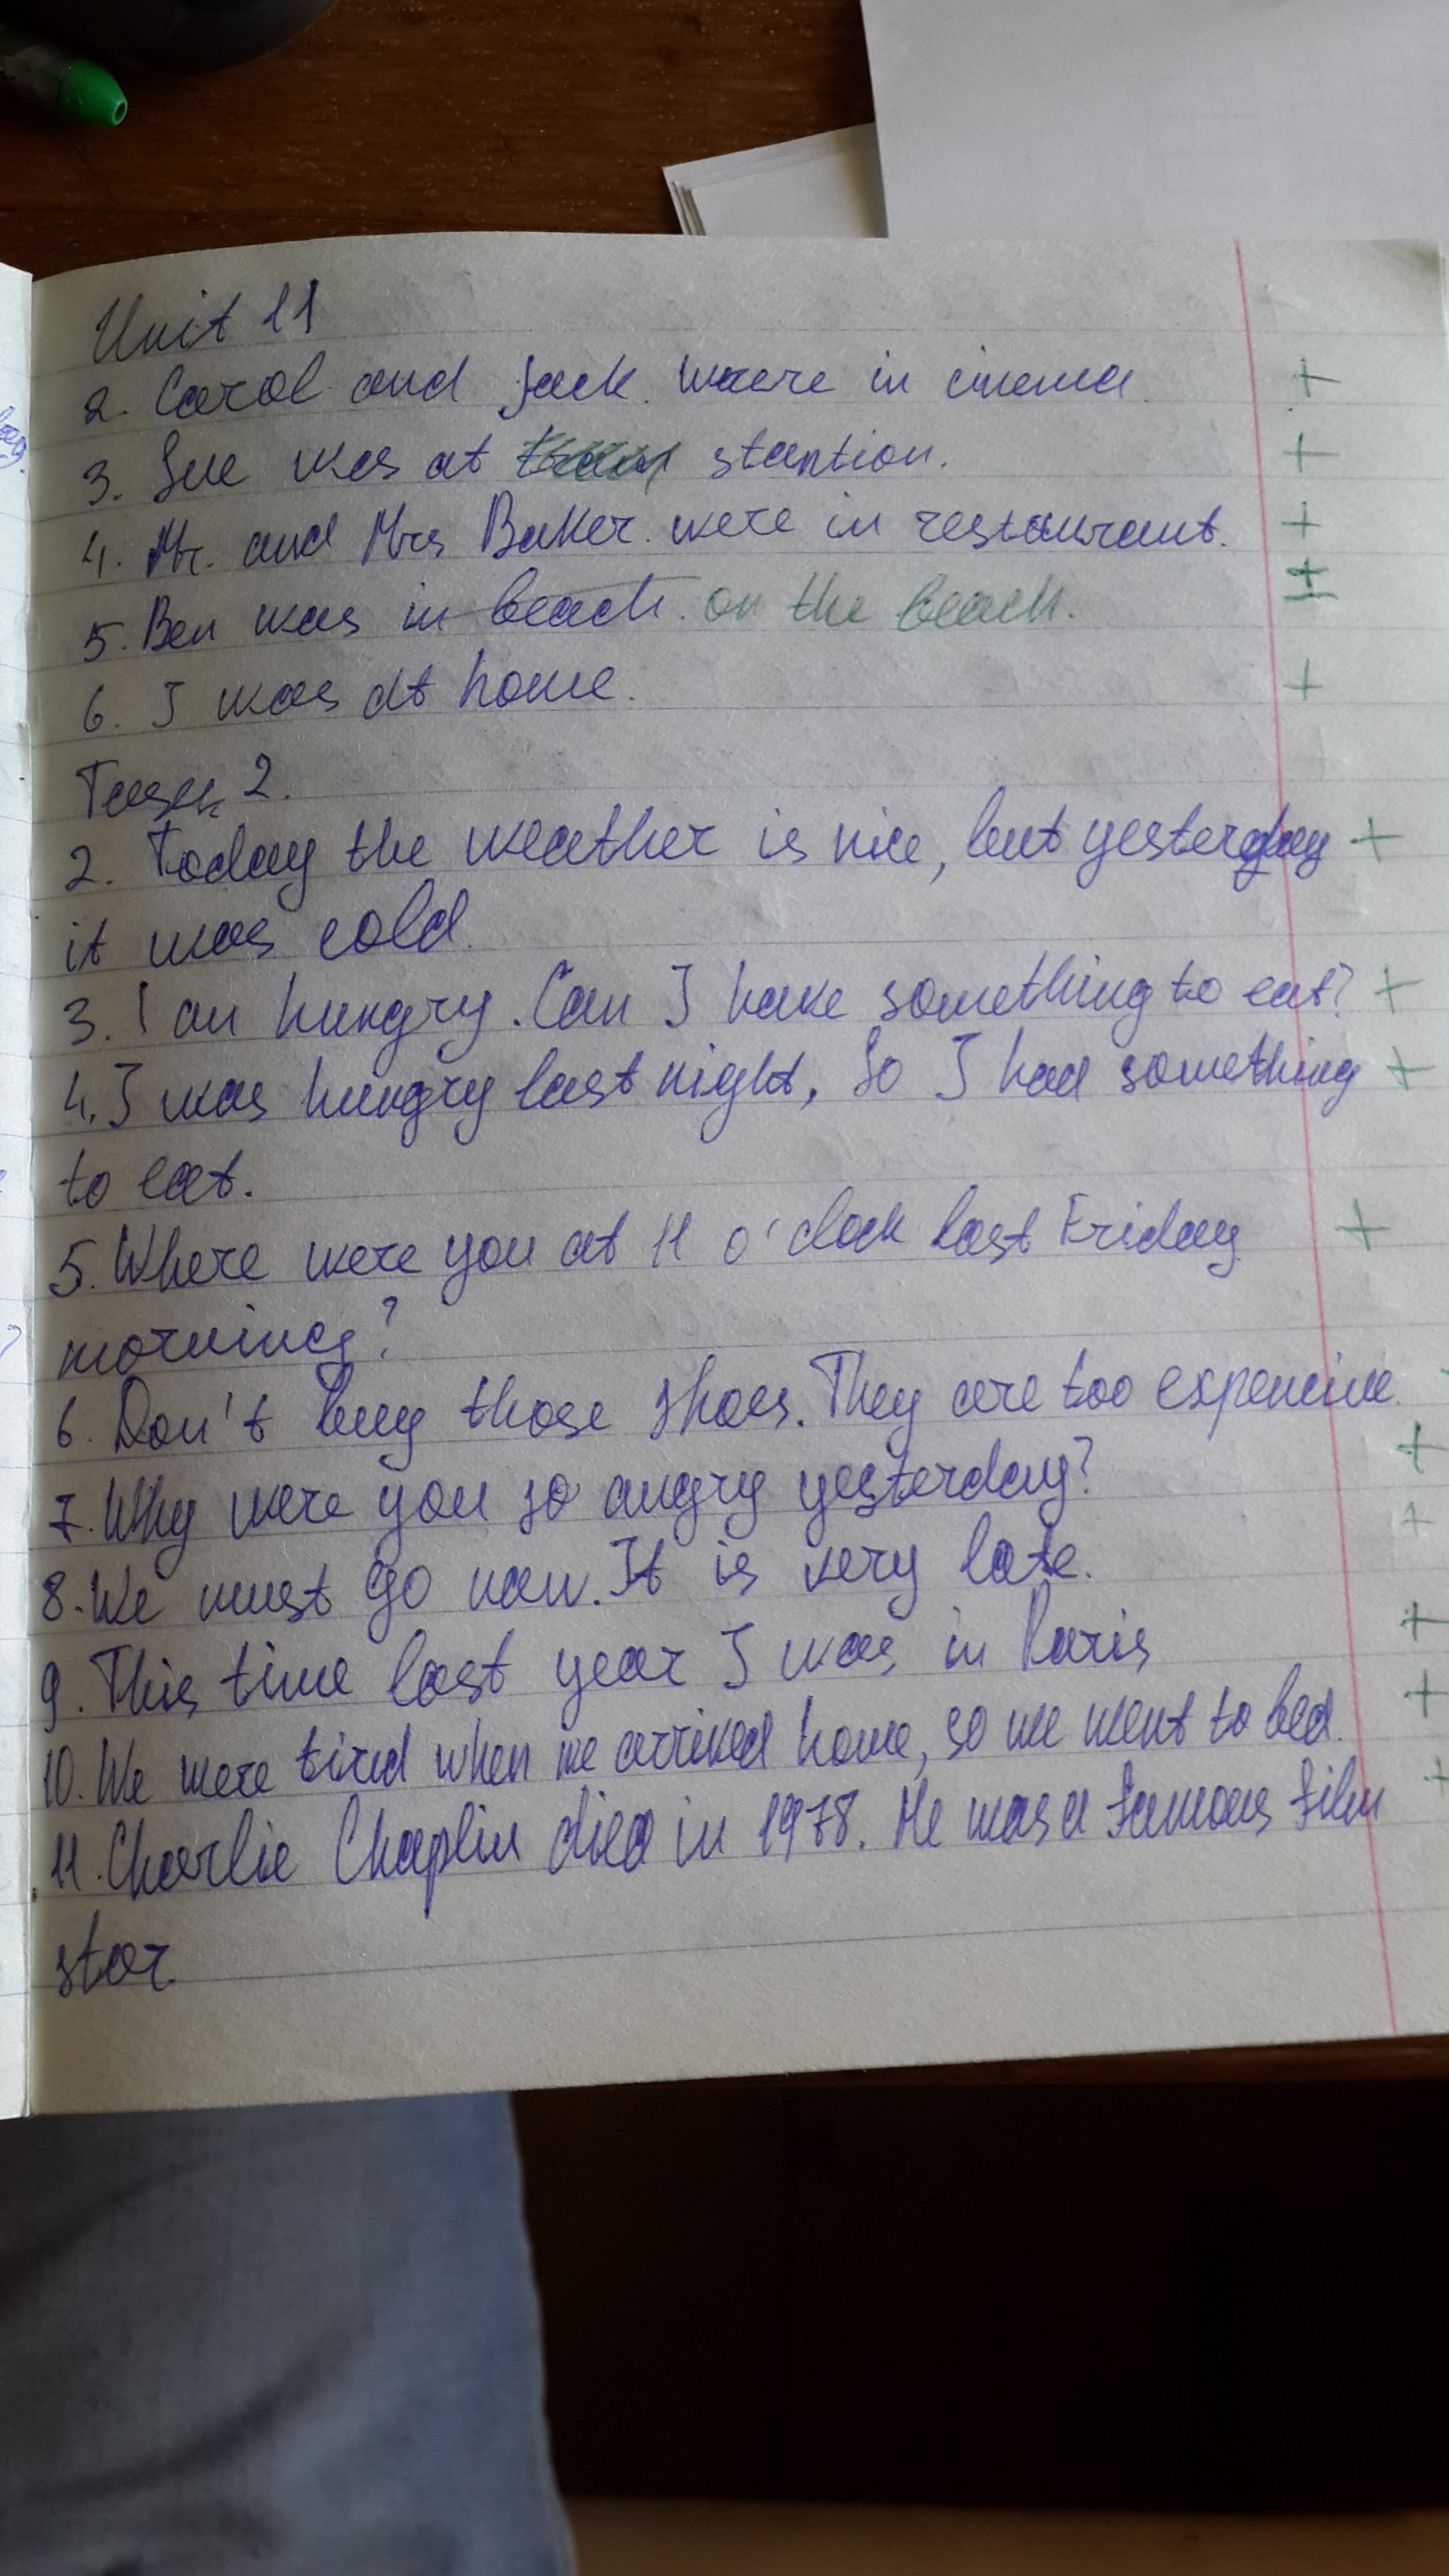 Unit 11
2. Carol and Jack were in cinema
3. Sue was at stantion.
4. Mr. and Mrs Baker were in restaurant.
5. Ben was in beach. on the beach.
6. I was at home.
2.
2. Today the weather is nice, but yesterday
it was cold.
3. I am hungry. Can I have something to eat?
4. I was hungry last night, So I had something
to eat.
5. Where were you at 11 o'clock last Friday
morning?
6. Don't buy those shoes. They are too expencive.
7. Why were you so angry yesterday?
8. We must go now. It is very late.
9. This time last year I was in Paris
10. We were tired when we arrived home, so we went to bed.
11. Charlie Chaplin died in 1978. He was a famous film
star